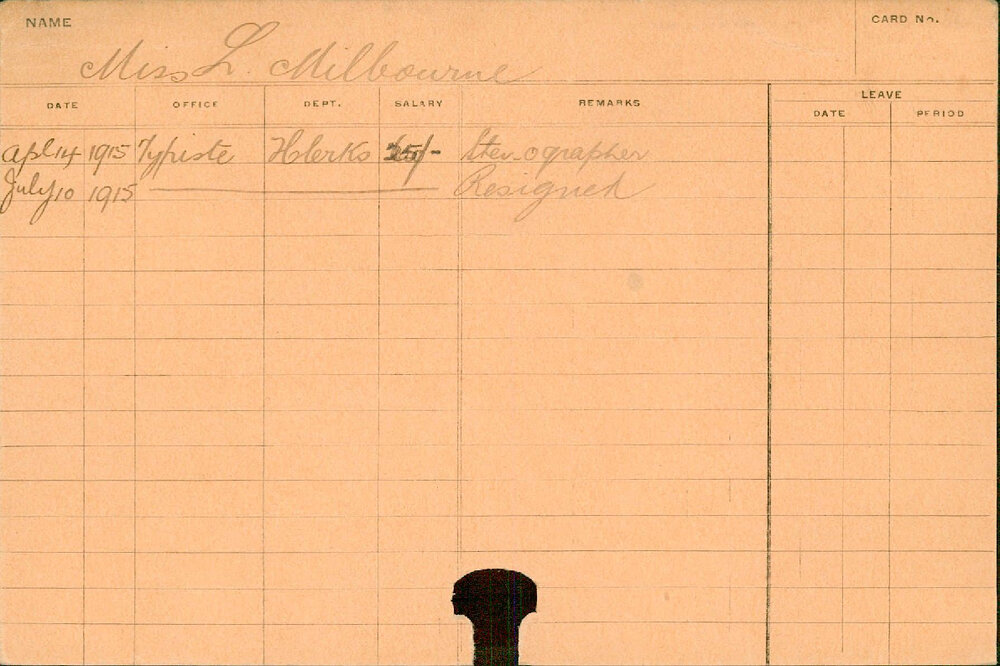 NAME
CARD No.
Miss L. Milbourne
DATE OFFICE DEPT. SALARY REMARKS LEAVE
DATE PERIOD
Apl 14 1915 Typiste Stenographer
July 10 1915 Resigned